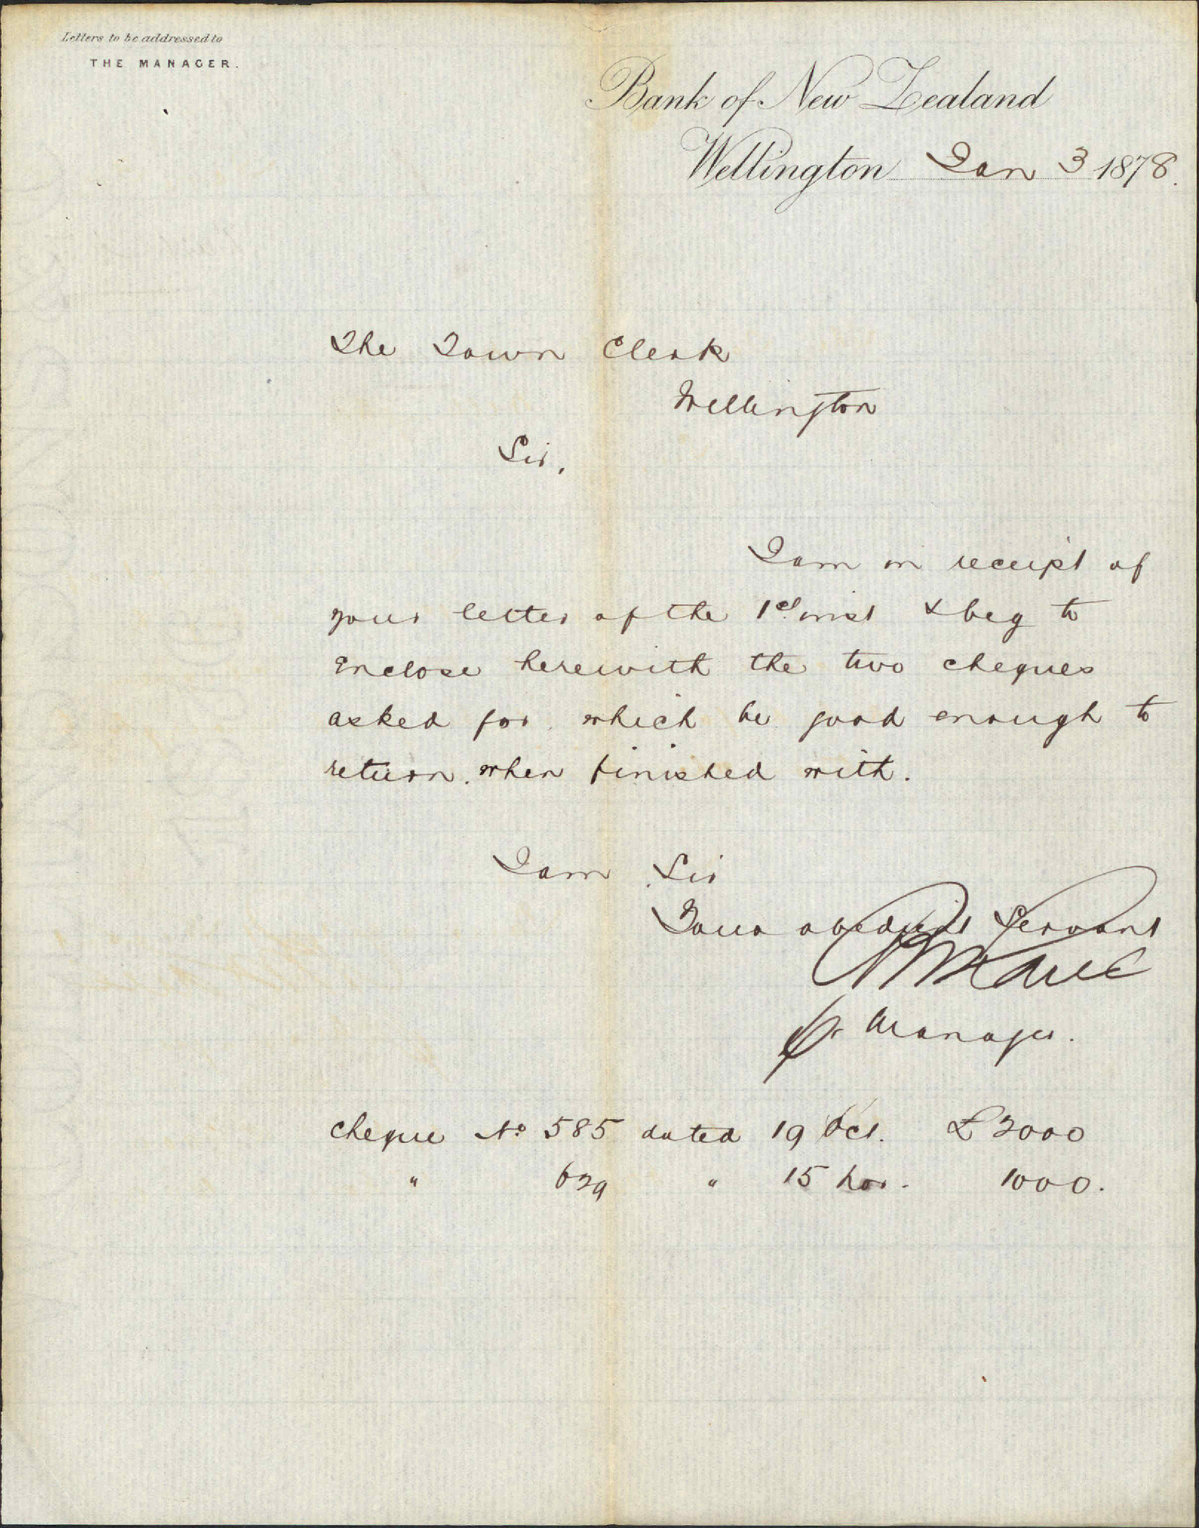 Letters to be addressed to
THE MANAGER.
Bank of New Zealand
Wellington Jan 3 1878.
The Town Clerk
Wellington
Sir,
I am in receipt of
your letter of the 1st inst & beg to
enclose herewith the two cheques
asked for which be good enough to
return when finished with.
I am Sir
Your obedient Servant
pr Manager.
Cheque No 585 dated 19 Oct. £2000
" 629 " 15 Nov. 1000.